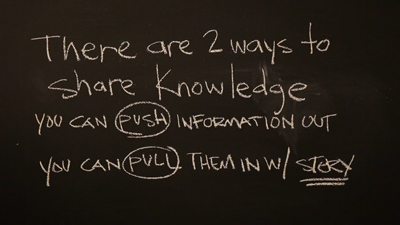 There are 2 ways to
share knowledge
YOU CAN PUSH INFORMATION OUT
YOU CAN PULL THEM IN W/ STORY